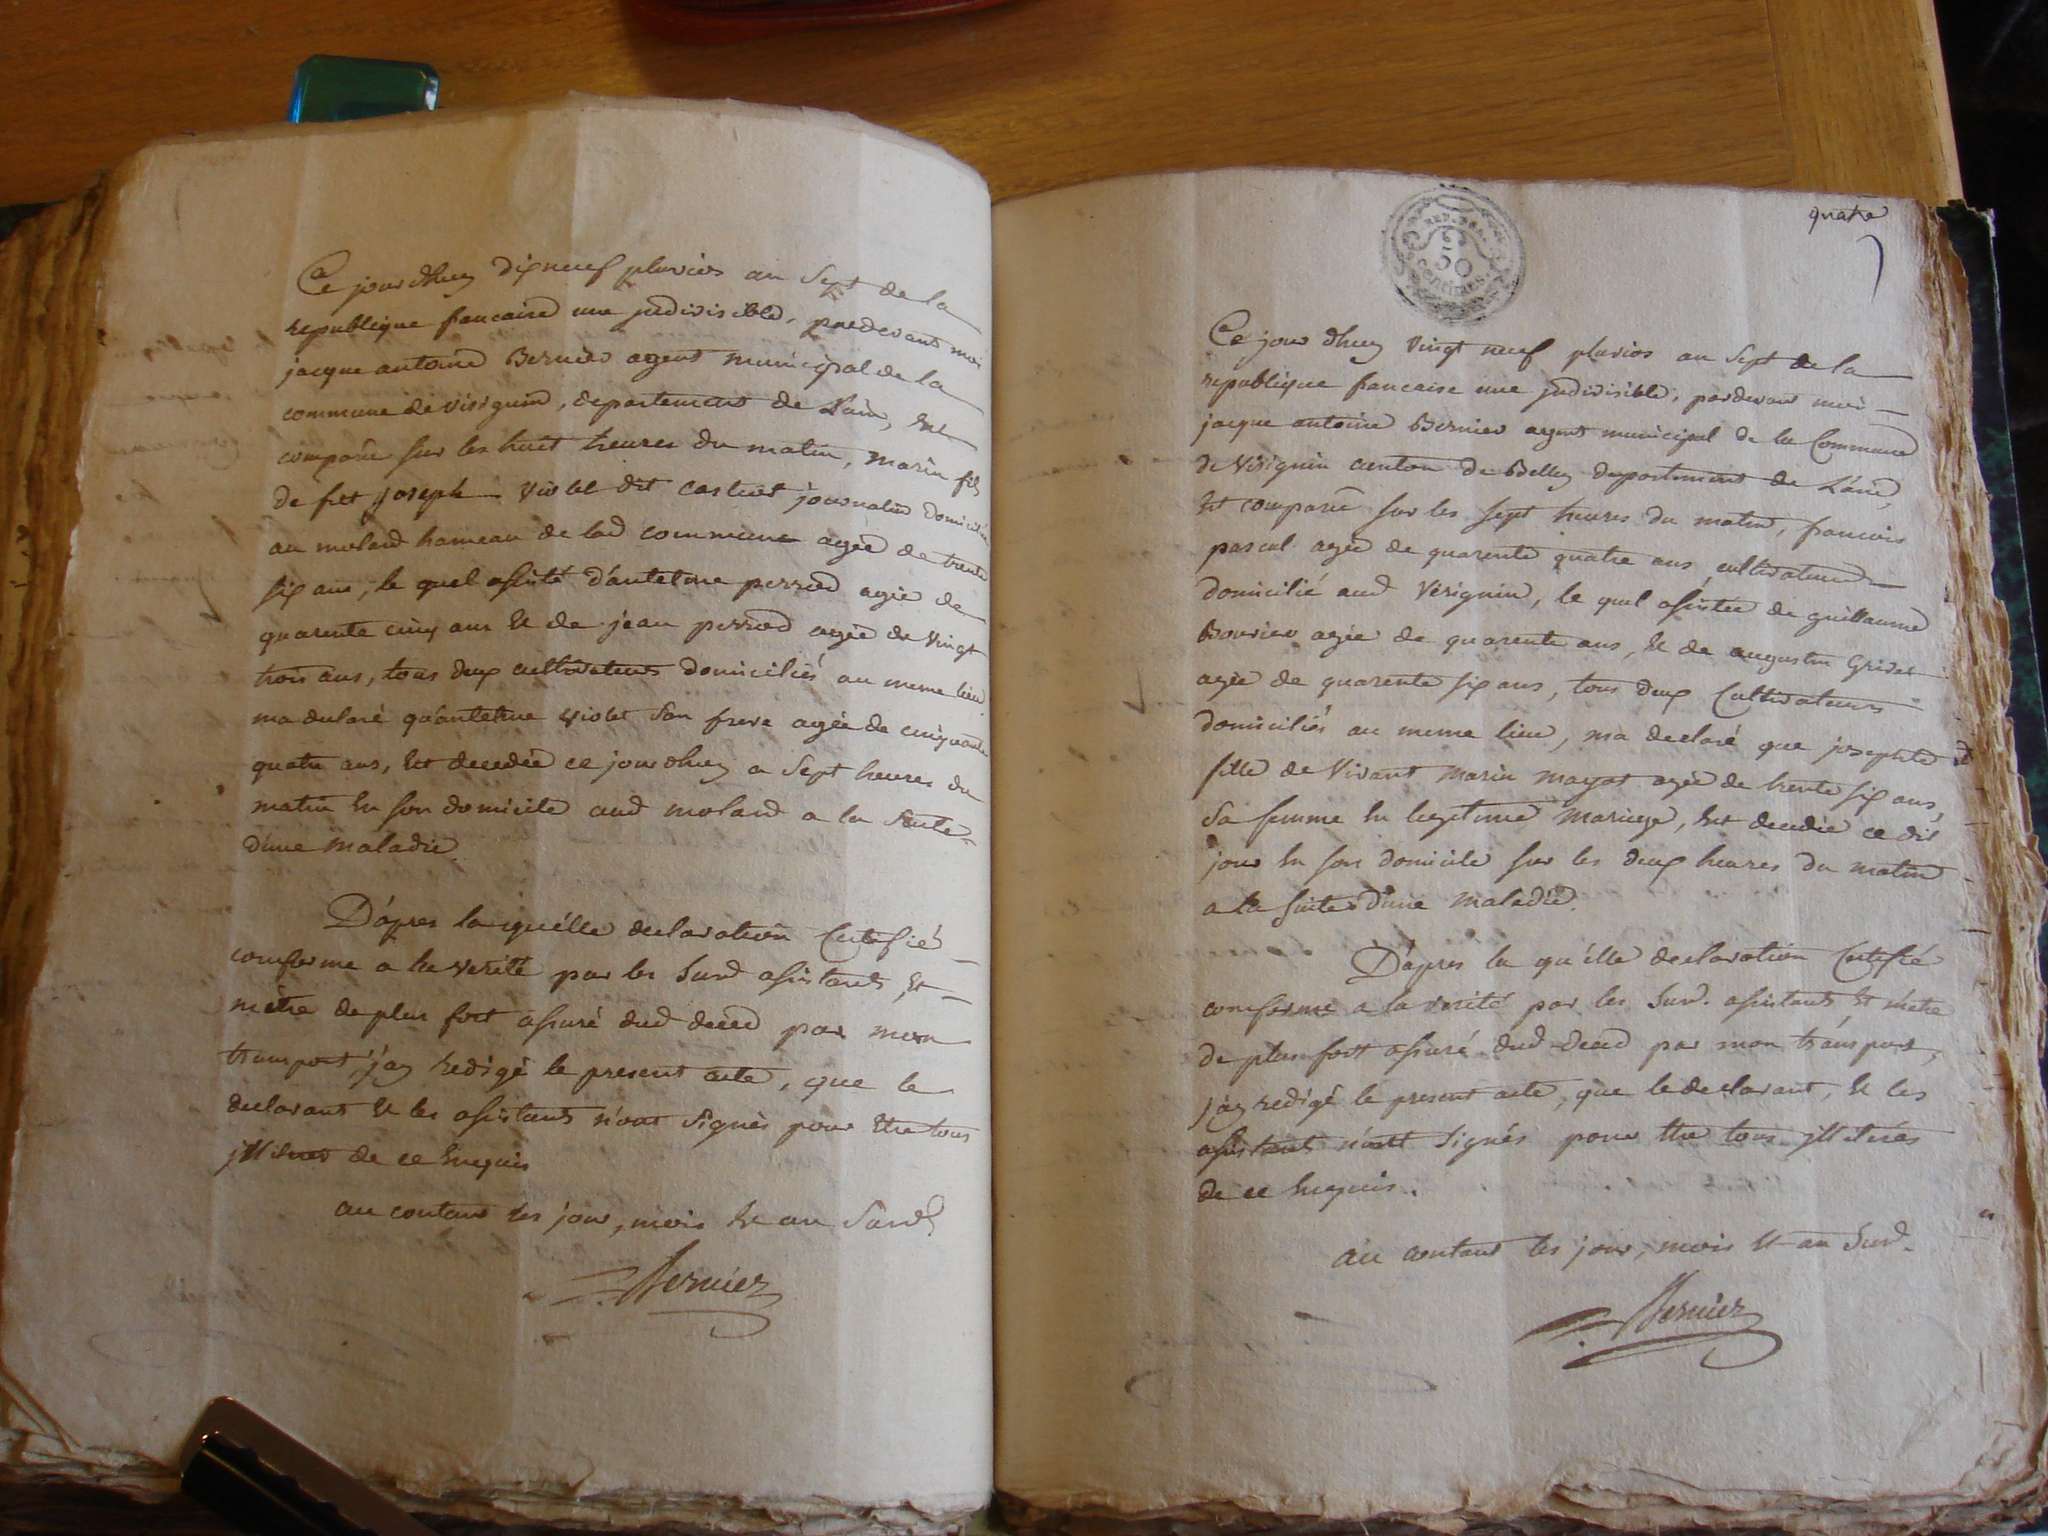 Ce jourdhuy dixneuf pluvios an Sept de la
republique francaise une jndivisible, pardevant moi
jacque antoine Bernier agent municipal de la
commune de virignin, departement de Lain, Est
comparu sur les huit heures du matin, marin fils
de feu joseph violet dit castuet journalier domicilié
au molard hameau de lad commune agée de trente
six ans, le quel assisté d'antelme perrod agée de
quarente cinq ans Et de jean perrod agée de vingt
trois ans, tous deux cultivateurs domiciliés au meme lieu
ma declaré qu'antelme violet Son frere agée de cinquante
quatre ans, Est decedée ce jourdhuy a Sept heures du
matin En son domicile aud molard a la Suite
d'une maladie
D'apres la qu'elle declaration Certifié
conforme a la verité par les Susd assistants, Et
m'etre de plus fort assuré dud deced par mon
transport, j'ay redigé le present acte, que le
declarant Et les assistants n'ont Signés pour Etre tous
jlliteres de ce Enquis
au contant les jour, mois Et an Susd
Bernier
quatre
REP. FRA.
50
centimes
Ce jour dhuy vingt neuf pluvios an Sept de la
republique francaise une jndivisible, pardevant moi
jacque antoine Bernier agent municipal de la Commune
de Virignin canton de Belley departement de L'ain,
Est comparu sur les sept heures du matin, francois
pascal agée de quarente quatre ans cultivateur
domicilié aud Virignin, le quel assistée de guillaume
Bouvier agée de quarente ans, Et de augustin Grivet
agée de quarente six ans, tous deux Cultivateurs
domiciliés au meme lieu, ma declaré que josephte
fille de Vivant Marin mayot agée de trente six ans,
Sa femme En legitime Mariage, Est decedée ce dit
jour En son domicile sur les deux heures du matin
a la suite d'une maladie.
D'apres la qu'elle declaration Certifié
conforme a la verité par les Susd. assistants Et m'etre
de plus fort assuré dud deced par mon transport,
j'ay redigé le present acte, que le declarant, Et les
assistants n'ont Signés pour Etre tous jlliteres
de ce Enquis.
au contant les jour, mois Et an Susd.
Bernier